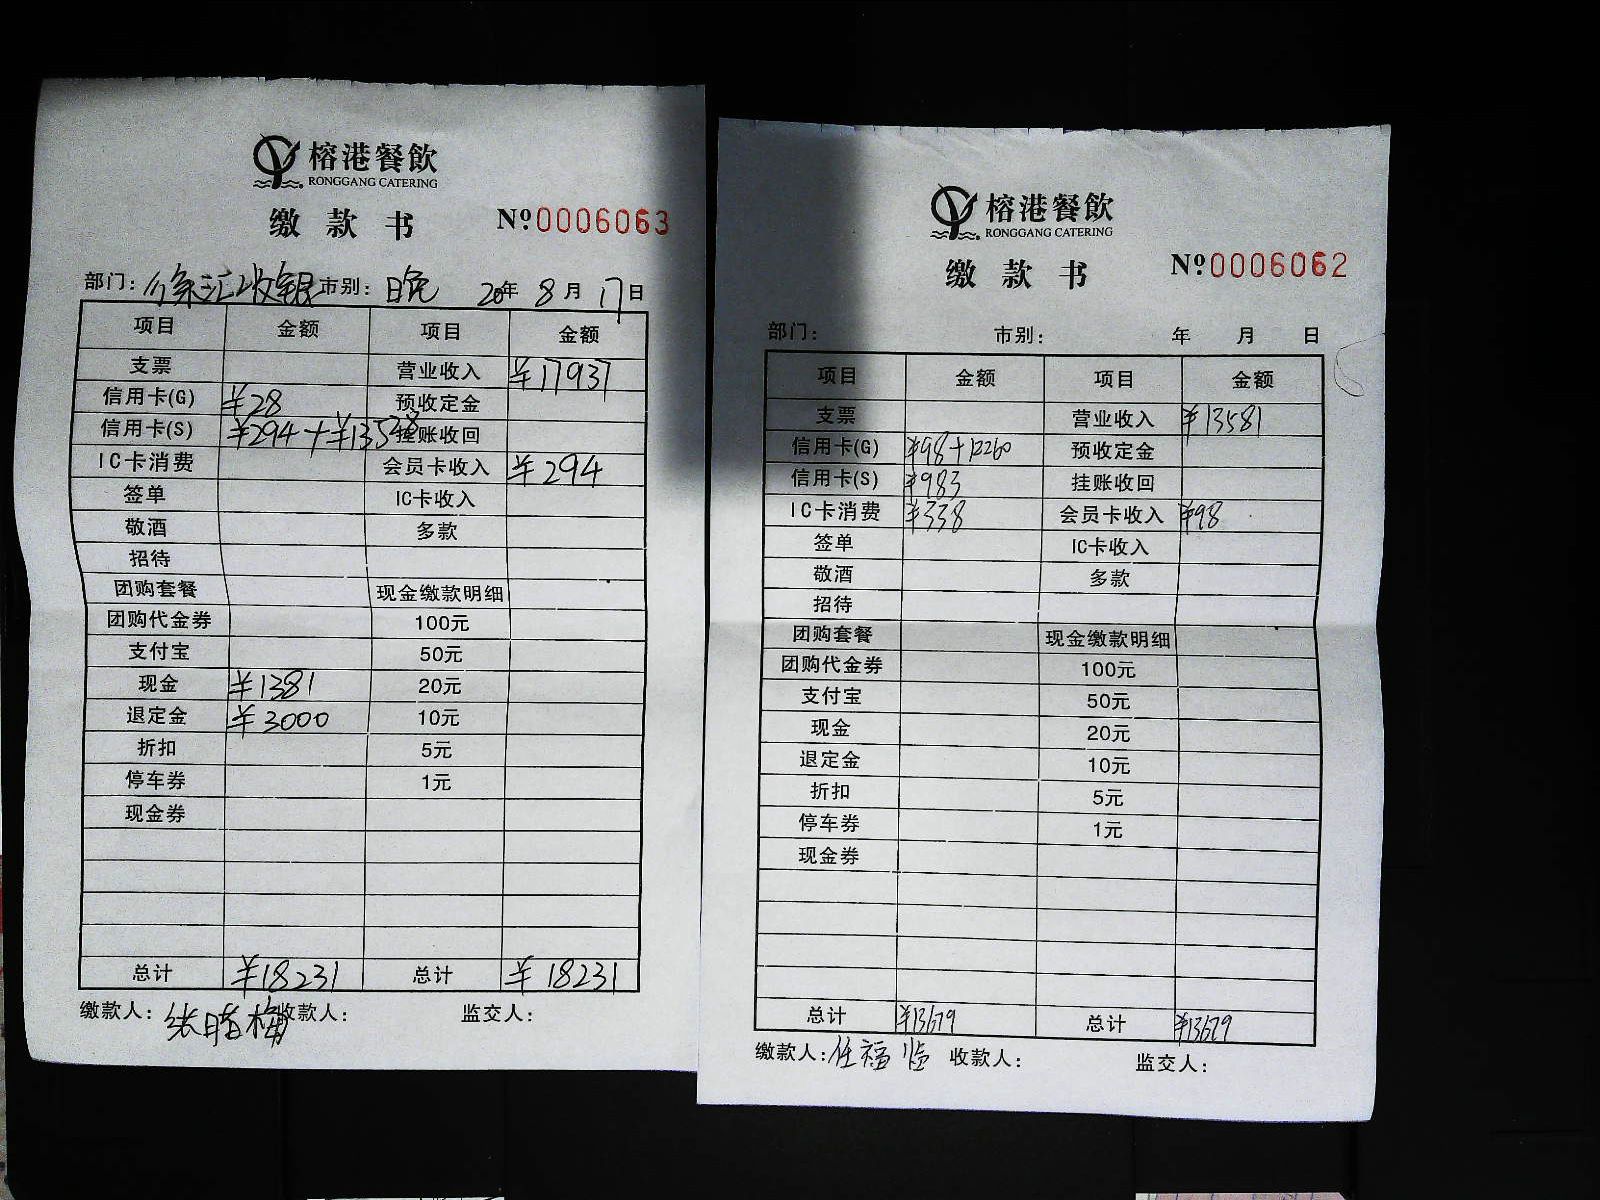 榕港餐飲
RONGGANG CATERING
缴款书 Nº0006063
部门: 徐汇收银 市别: 晚 20年 8月 17日
项目 金额 项目 金额
支票 营业收入 ¥17937
信用卡(G) ¥28 预收定金
信用卡(S) ¥294+¥13528 挂账收回
IC卡消费 会员卡收入 ¥294
签单 IC卡收入
敬酒 多款
招待
团购套餐 现金缴款明细
团购代金券 100元
支付宝 50元
现金 ¥1381 20元
退定金 ¥3000 10元
折扣 5元
停车券 1元
现金券
总计 ¥18231 总计 ¥18231
缴款人: 张 梅 收款人: 监交人:
榕港餐飲
RONGGANG CATERING
缴款书 Nº0006062
部门: 市别: 年 月 日
项目 金额 项目 金额
支票 营业收入 ¥13581
信用卡(G) ¥98+12260 预收定金
信用卡(S) ¥983 挂账收回
IC卡消费 ¥338 会员卡收入 ¥98
签单 IC卡收入
敬酒 多款
招待
团购套餐 现金缴款明细
团购代金券 100元
支付宝 50元
现金 20元
退定金 10元
折扣 5元
停车券 1元
现金券
总计 ¥13679 总计 ¥13679
缴款人: 任福临 收款人: 监交人: